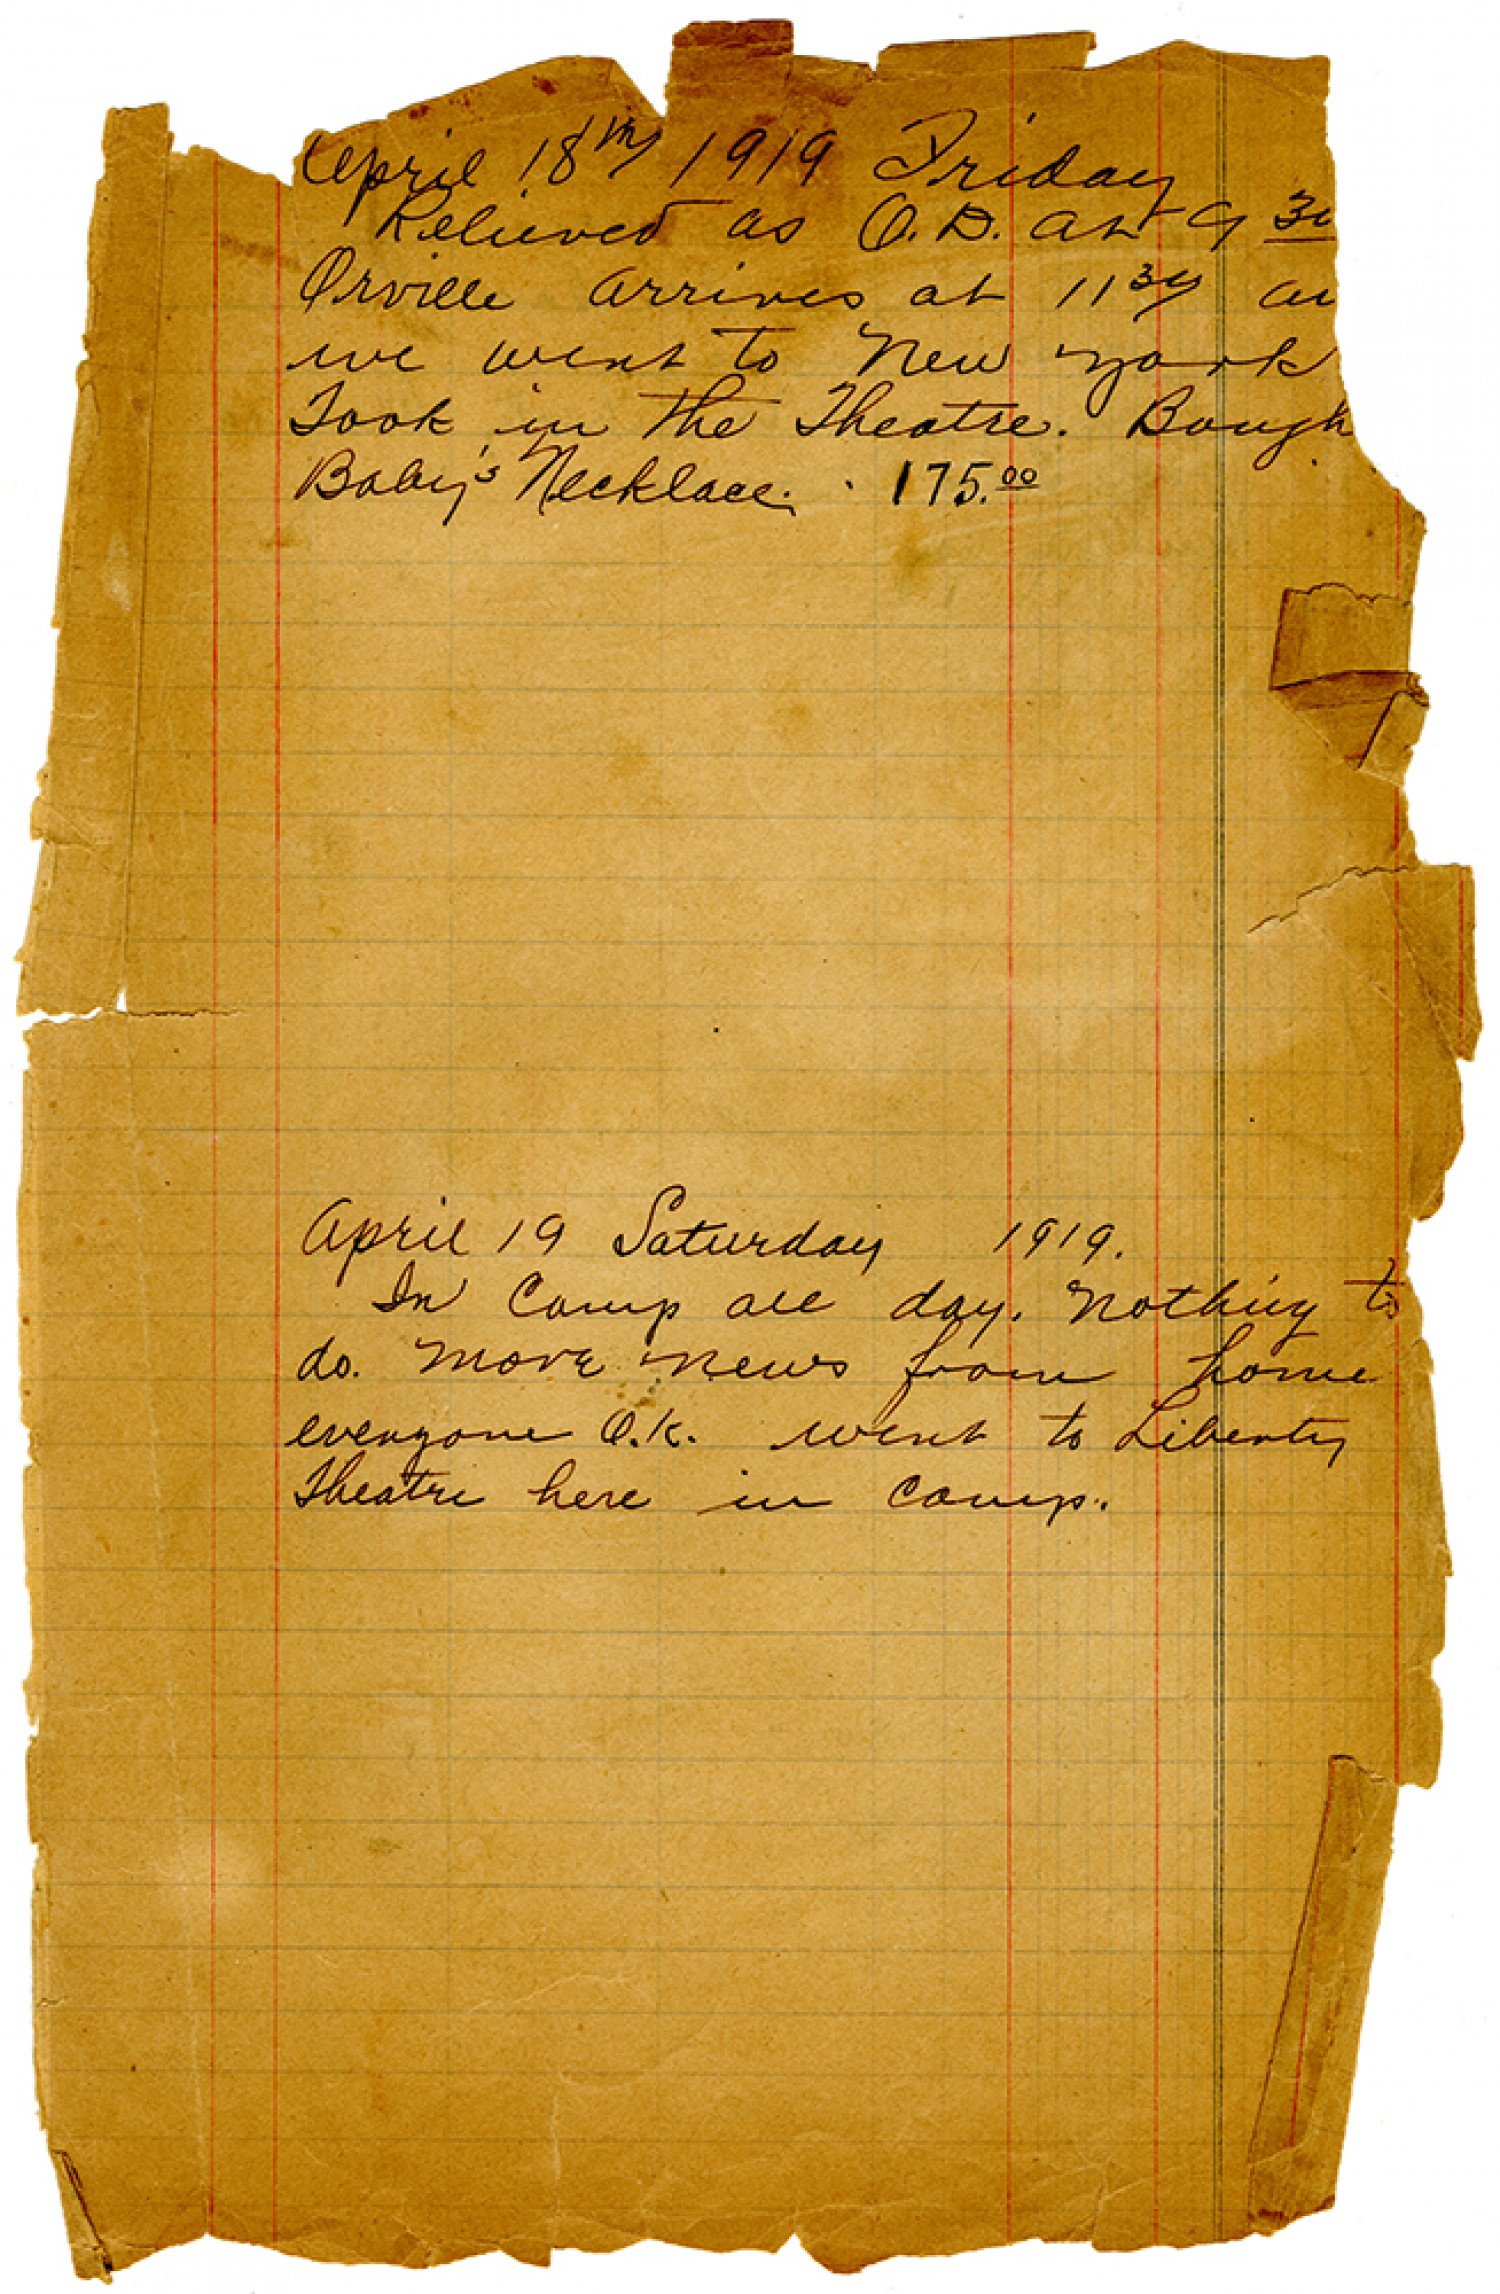 April 18th 1919 Friday
Relieved as O.D. at 9 30
Orville arrives at 11 30
we went to New York
Took in the Theatre. Bough
Baby's Necklace. 175.00
April 19 Saturday 1919.
In Camp all day. Nothing to
do. More news from home
everyone O.K. went to Liberty
Theatre here in Camp.